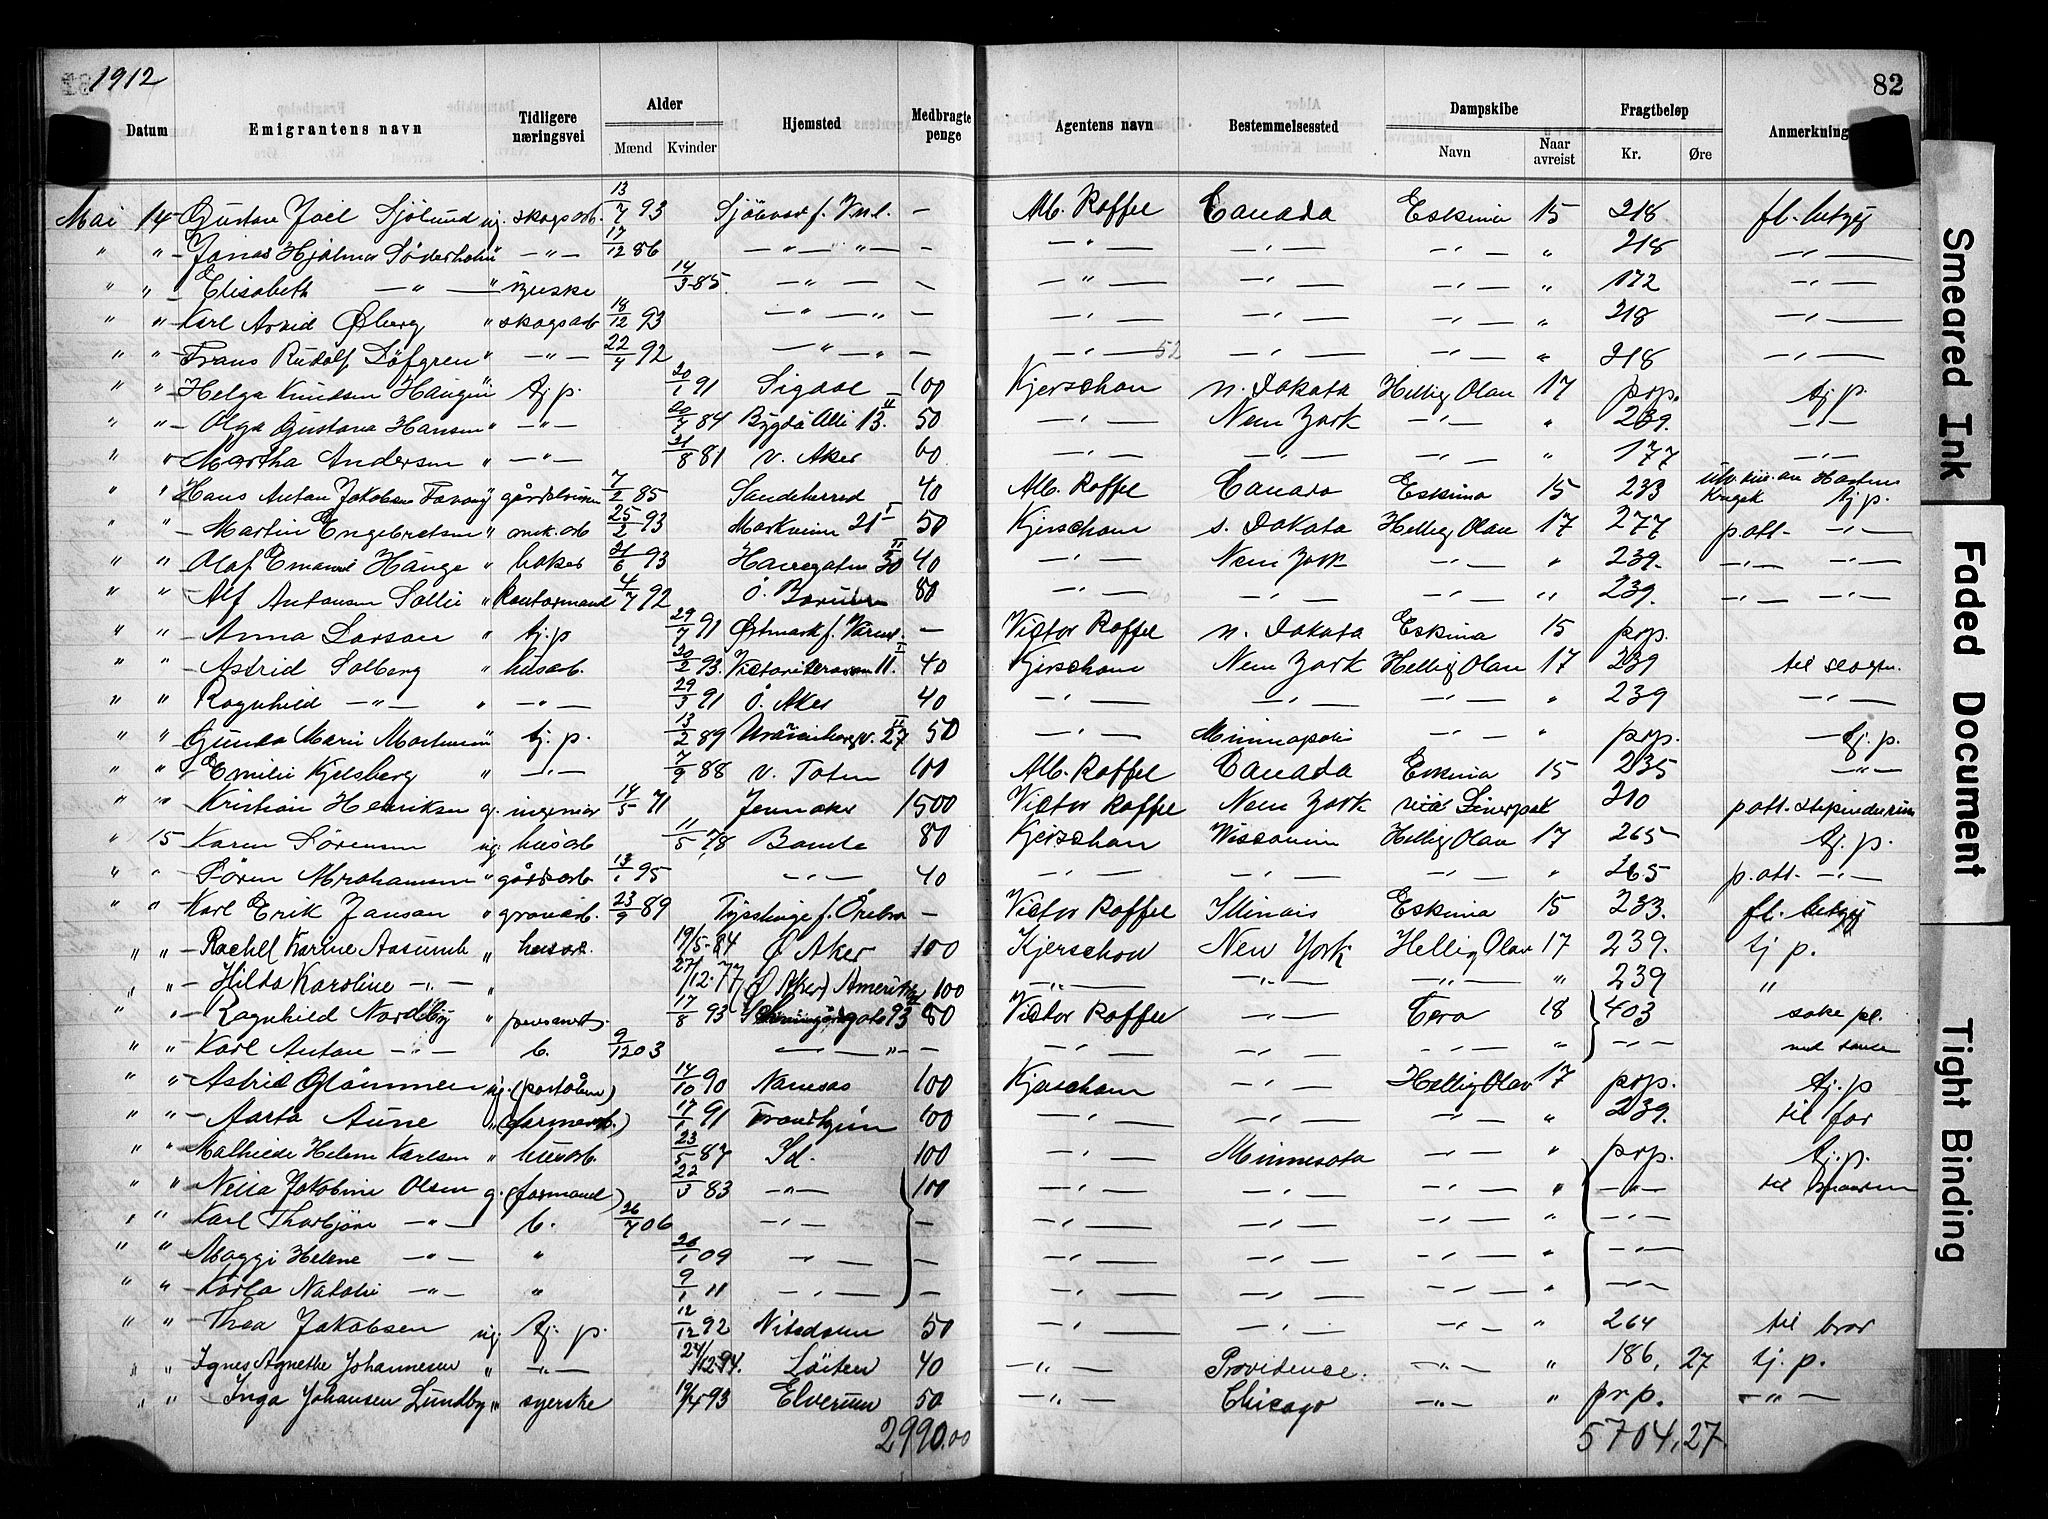 1912
82
Datum | Emigrantens navn | Tidligere næringsvei | Alder Mænd Kvinder | Hjemsted | Medbragte penge | Agentens navn | Bestemmelsessted | Dampskibe Navn Naar avreist | Fragtbeløp Kr. Øre | Anmerkning
Mai 14 Gustav Joel Sjölund ug. skogsarb. 13/7 93 f. Vml. – Alb. Raffel Canada Eskimo 15 218 fl. betyg
" " – Jonas Hjalmar Söderholm – " – 17/12 86 – " – " – – – " – – " – – " – " 218 – " –
" " – Elisabeth – " – " 14/3 85. – " – – – " – – " – – " – " 172 – " –
" " – Karl Arvid Øberg " skogsarb 18/12 93 – " – " – – – " – – " – – " – " 218 – " –
" " – Frans Rudolf Löfgren " – " – 22/4 92 – " – " – – – " – 52 – " – – " – " 218 – " –
" " – Helga Knudsen Haugen " tj. p. 20/1 91 Sigdal 100 Kjerschow N. Dakota Hellig Olav 17 prp. tj. p.
" " – Olga Gustava Hansen " – " – 20/7 84 Bygdø Allé 13 II 50 – " – New York – " – " 239. – " –
" " Martha Andersen " – " – 21/8 81 V. Aker 60 – " – – " – – " – " 177 – " –
" " Hans Anton Jakobsen " 7/2 85 Sandeherred 40 Alb. Raffel Canada Eskimo 15 233 tj. p.
" " – Martin Engebretsen " 25/2 93 21 I 50 Kjerschow S. Dakota Hellig Olav 17 277 p. att. – " –
" " Olaf Emanuel Hauge " baker 21/6 93 30 II 40 – " – New York – " – " 239. – " – – " –
" " – Alf Antonsen Sollie " Kontormand 4/7 92 Ö. Bærum 80 – " – – " – – " – " 239. – " – – " –
" " – Anna Larson " tj. p 29/7 91 Østmark f. Värml. – Victor Raffel N. Dakota Eskimo 15 prp.
" " – Astrid Solberg " husarb. 20/2 93. Victoria Terrassen 11. I 40 Kjerschow New York Hellig Olav 17 239 til slegtn.
" " – Ragnhild – " – " – " – 29/3 91 Ö. Aker 40 – " – – " – – " – " 239 – " –
" " Gunda Marie " tj. p. 13/2 89 Uranienborgv. 27 II 50 – " – Minneapolis – " – " prp. – tj. p.
" " – Emilie Kjelsberg " – " – 7/9 88 V. Toten 100 Alb. Raffel Canada Eskimo 15 235 – " –
" " Kristian Henriksen g. 14/5 71 Jevnaker 1500 Victor Raffel New York via Liverpool 210 p. att. stipendium
" 15 Karen Sörensen ug. husarb 11/5 78 Bamle 80 Kjerschow Wisconsin Hellig Olav 17 265 tj. p.
" " Sören Abrahamsen " gårdsarb 13/1 95 – " – 40 – " – – " – – " – " 265 p. att. – " –
" " Karl Erik Janson " 23/9 89 Tysslinge f. Örebro – Victor Raffel Illinois Eskimo 15 233. fl. betyg
" " – Rachel Karine Aasumb " husarb. 19/5–84 Ø Aker 100 Kjerschow New York Hellig Olav 17 239. tj p.
" " – Hilda Karoline – " – " 27/12.77 (Ø Aker) Amerika 100 – " – – " – – " – " 239 "
" " – Ragnhild Nordeby " 17/8 93 93 80 Victor Raffel – " – 18 403
" " – Karl Anton – " – b. 9/12 03 – " – – – " – – " – – " – " – " –
" " – Astrid Glommen ug. 14/10 90 Namsos 100 Kjerschow Hellig Olav 17 prp. tj. p
" " – Marta Aune " 17/1 91 Trondhjem 100 – " – – " – " 239. til far
" " – Mathilde Helene Karlsen " husarb. 23/5 87 Id. 100 – " – Minnesota – " – " prp. tj. p.
" " – Jakobine Olsen g. (formand) 22/3 83 – " – 100 – " – – " – – " – " – " – til manden
" " – Karl Thorbjörn – " – b. 26/7 06 – " – – – " – – " – – " – " – " –
" " – Maggi Helene – " – " 26/1 09 – " – – – " – – " – – " – " – " –
" " – Karla Natalie – " – " 9/1 11 – " – – – " – – " – – " – " – " –
" " – Thea Jakobsen ug. tj. p. 12/12 92 Nitedalen 50 – " – – " – – " – " 264 til bror
" " – Agnes Agnethe Johannesen " – " – 24/12.94. Löiten 40 – " – Providence. – " – " 186, 27 tj. p.
" " – Inga Johansen Lundby " syerske 19/4 93 Elverum 50 – " – Chicago – " – " prp. – " –
2990.00
5704,27
Smeared Ink
Faded Document
Tight Binding